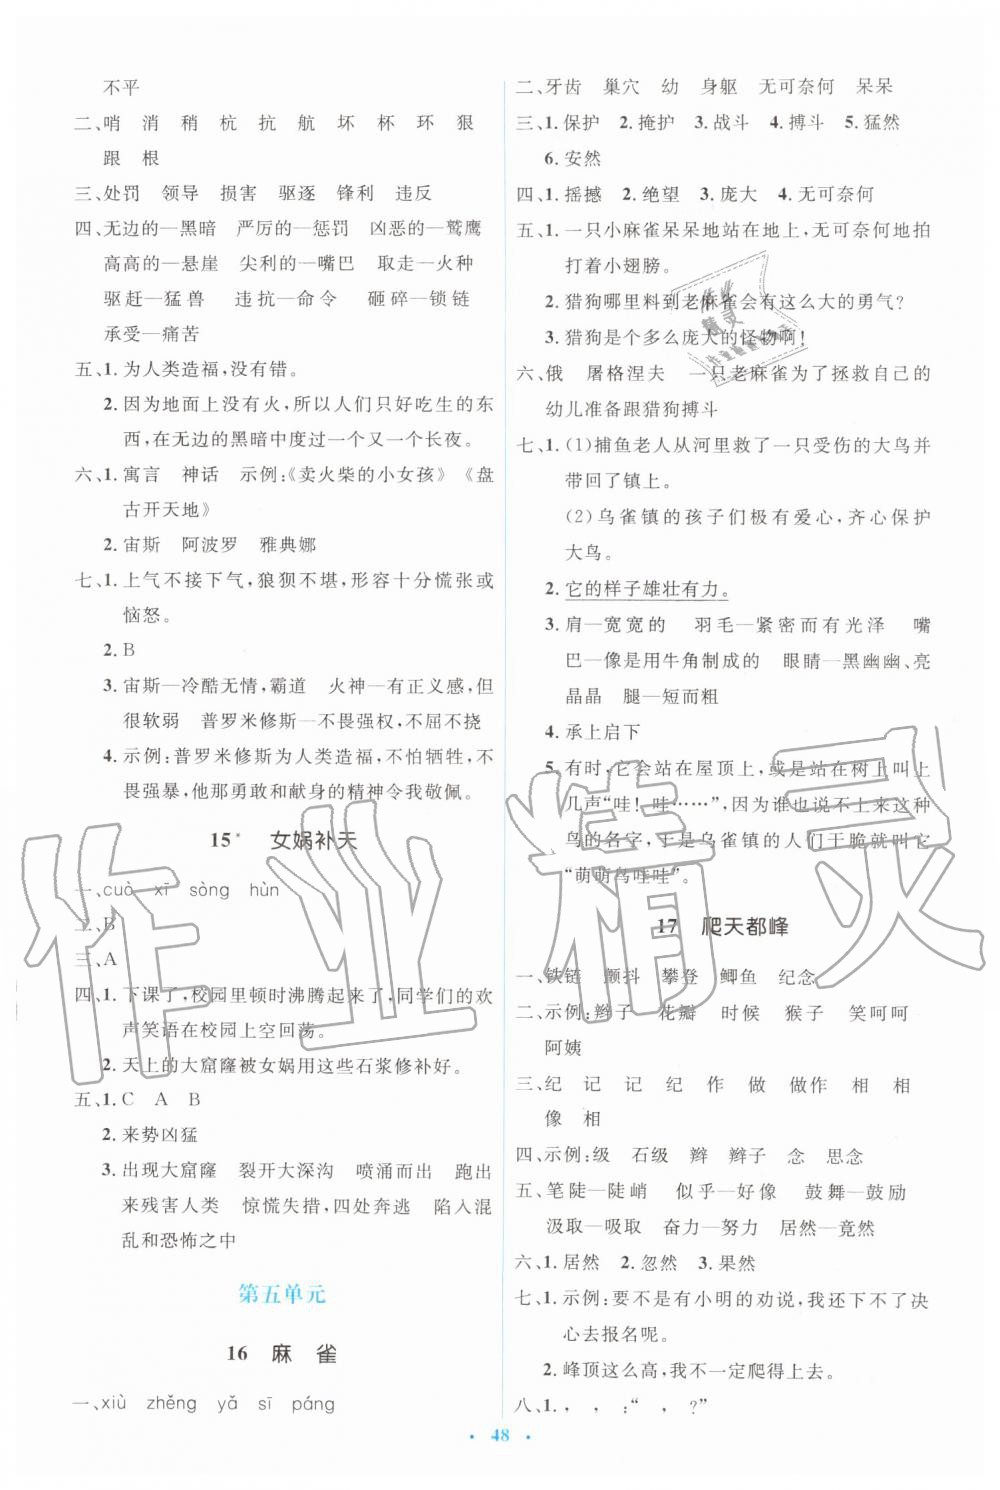 不平
二、哨 消 稍 杭 抗 航 坏 杯 环 狠
跟 根
三、处罚 领导 损害 驱逐 锋利 违反
四、无边的—黑暗 严厉的—惩罚 凶恶的—鹫鹰
高高的—悬崖 尖利的—嘴巴 取走—火种
驱赶—猛兽 违抗—命令 砸碎—锁链
承受—痛苦
五、1. 为人类造福，没有错。
2. 因为地面上没有火，所以人们只好吃生的东
西，在无边的黑暗中度过一个又一个长夜。
六、1. 寓言 神话 示例：《卖火柴的小女孩》《盘
古开天地》
2. 宙斯 阿波罗 雅典娜
七、1. 上气不接下气，狼狈不堪，形容十分慌张或
恼怒。
2. B
3. 宙斯—冷酷无情，霸道 火神—有正义感，但
很软弱 普罗米修斯—不畏强权，不屈不挠
4. 示例：普罗米修斯为人类造福，不怕牺牲，不
畏强暴，他那勇敢和献身的精神令我敬佩。
15* 女娲补天
一、cuò xī sòng hùn
二、B
三、A
四、1. 下课了，校园里顿时沸腾起来了，同学们的欢
声笑语在校园上空回荡。
2. 天上的大窟窿被女娲用这些石浆修补好。
五、1. C A B
2. 来势凶猛
3. 出现大窟窿 裂开大深沟 喷涌而出 跑出
来残害人类 惊慌失措，四处奔逃 陷入混
乱和恐怖之中
第五单元
16 麻雀
一、xiù zhěng yǎ sī páng
二、牙齿 巢穴 幼 身躯 无可奈何 呆呆
三、1. 保护 2. 掩护 3. 战斗 4. 搏斗 5. 猛然
6. 安然
四、1. 摇撼 2. 绝望 3. 庞大 4. 无可奈何
五、1. 一只小麻雀呆呆地站在地上，无可奈何地拍
打着小翅膀。
2. 猎狗哪里料到老麻雀会有这么大的勇气？
3. 猎狗是个多么庞大的怪物啊！
六、俄 屠格涅夫 一只老麻雀为了拯救自己的
幼儿准备跟猎狗搏斗
七、1. （1）捕鱼老人从河里救了一只受伤的大鸟并
带回了镇上。
（2）乌雀镇的孩子们极有爱心，齐心保护
大鸟。
2. 它的样子雄壮有力。
3. 肩—宽宽的 羽毛—紧密而有光泽 嘴
巴—像是用牛角制成的 眼睛—黑幽幽、亮
晶晶 腿—短而粗
4. 承上启下
5. 有时，它会站在屋顶上，或是站在树上叫上
几声“哇！哇……”，因为谁也说不上来这种
鸟的名字，于是乌雀镇的人们干脆就叫它
“萌萌乌哇哇”。
17 爬天都峰
一、铁链 颤抖 攀登 鲫鱼 纪念
二、示例：辫子 花瓣 时候 猴子 笑呵呵
阿姨
三、纪 记 记 纪 作 做 做作 相 相
像 相
四、示例：级 石级 辫 辫子 念 思念
五、笔陡—陡峭 似乎—好像 鼓舞—鼓励
汲取—吸取 奋力—努力 居然—竟然
六、1. 居然 2. 忽然 3. 果然
七、1. 示例：要不是有小明的劝说，我还下不了决
心去报名呢。
2. 峰顶这么高，我不一定爬得上去。
八、1. ， ， ：“ ， ？”
· 48 ·
作业精灵